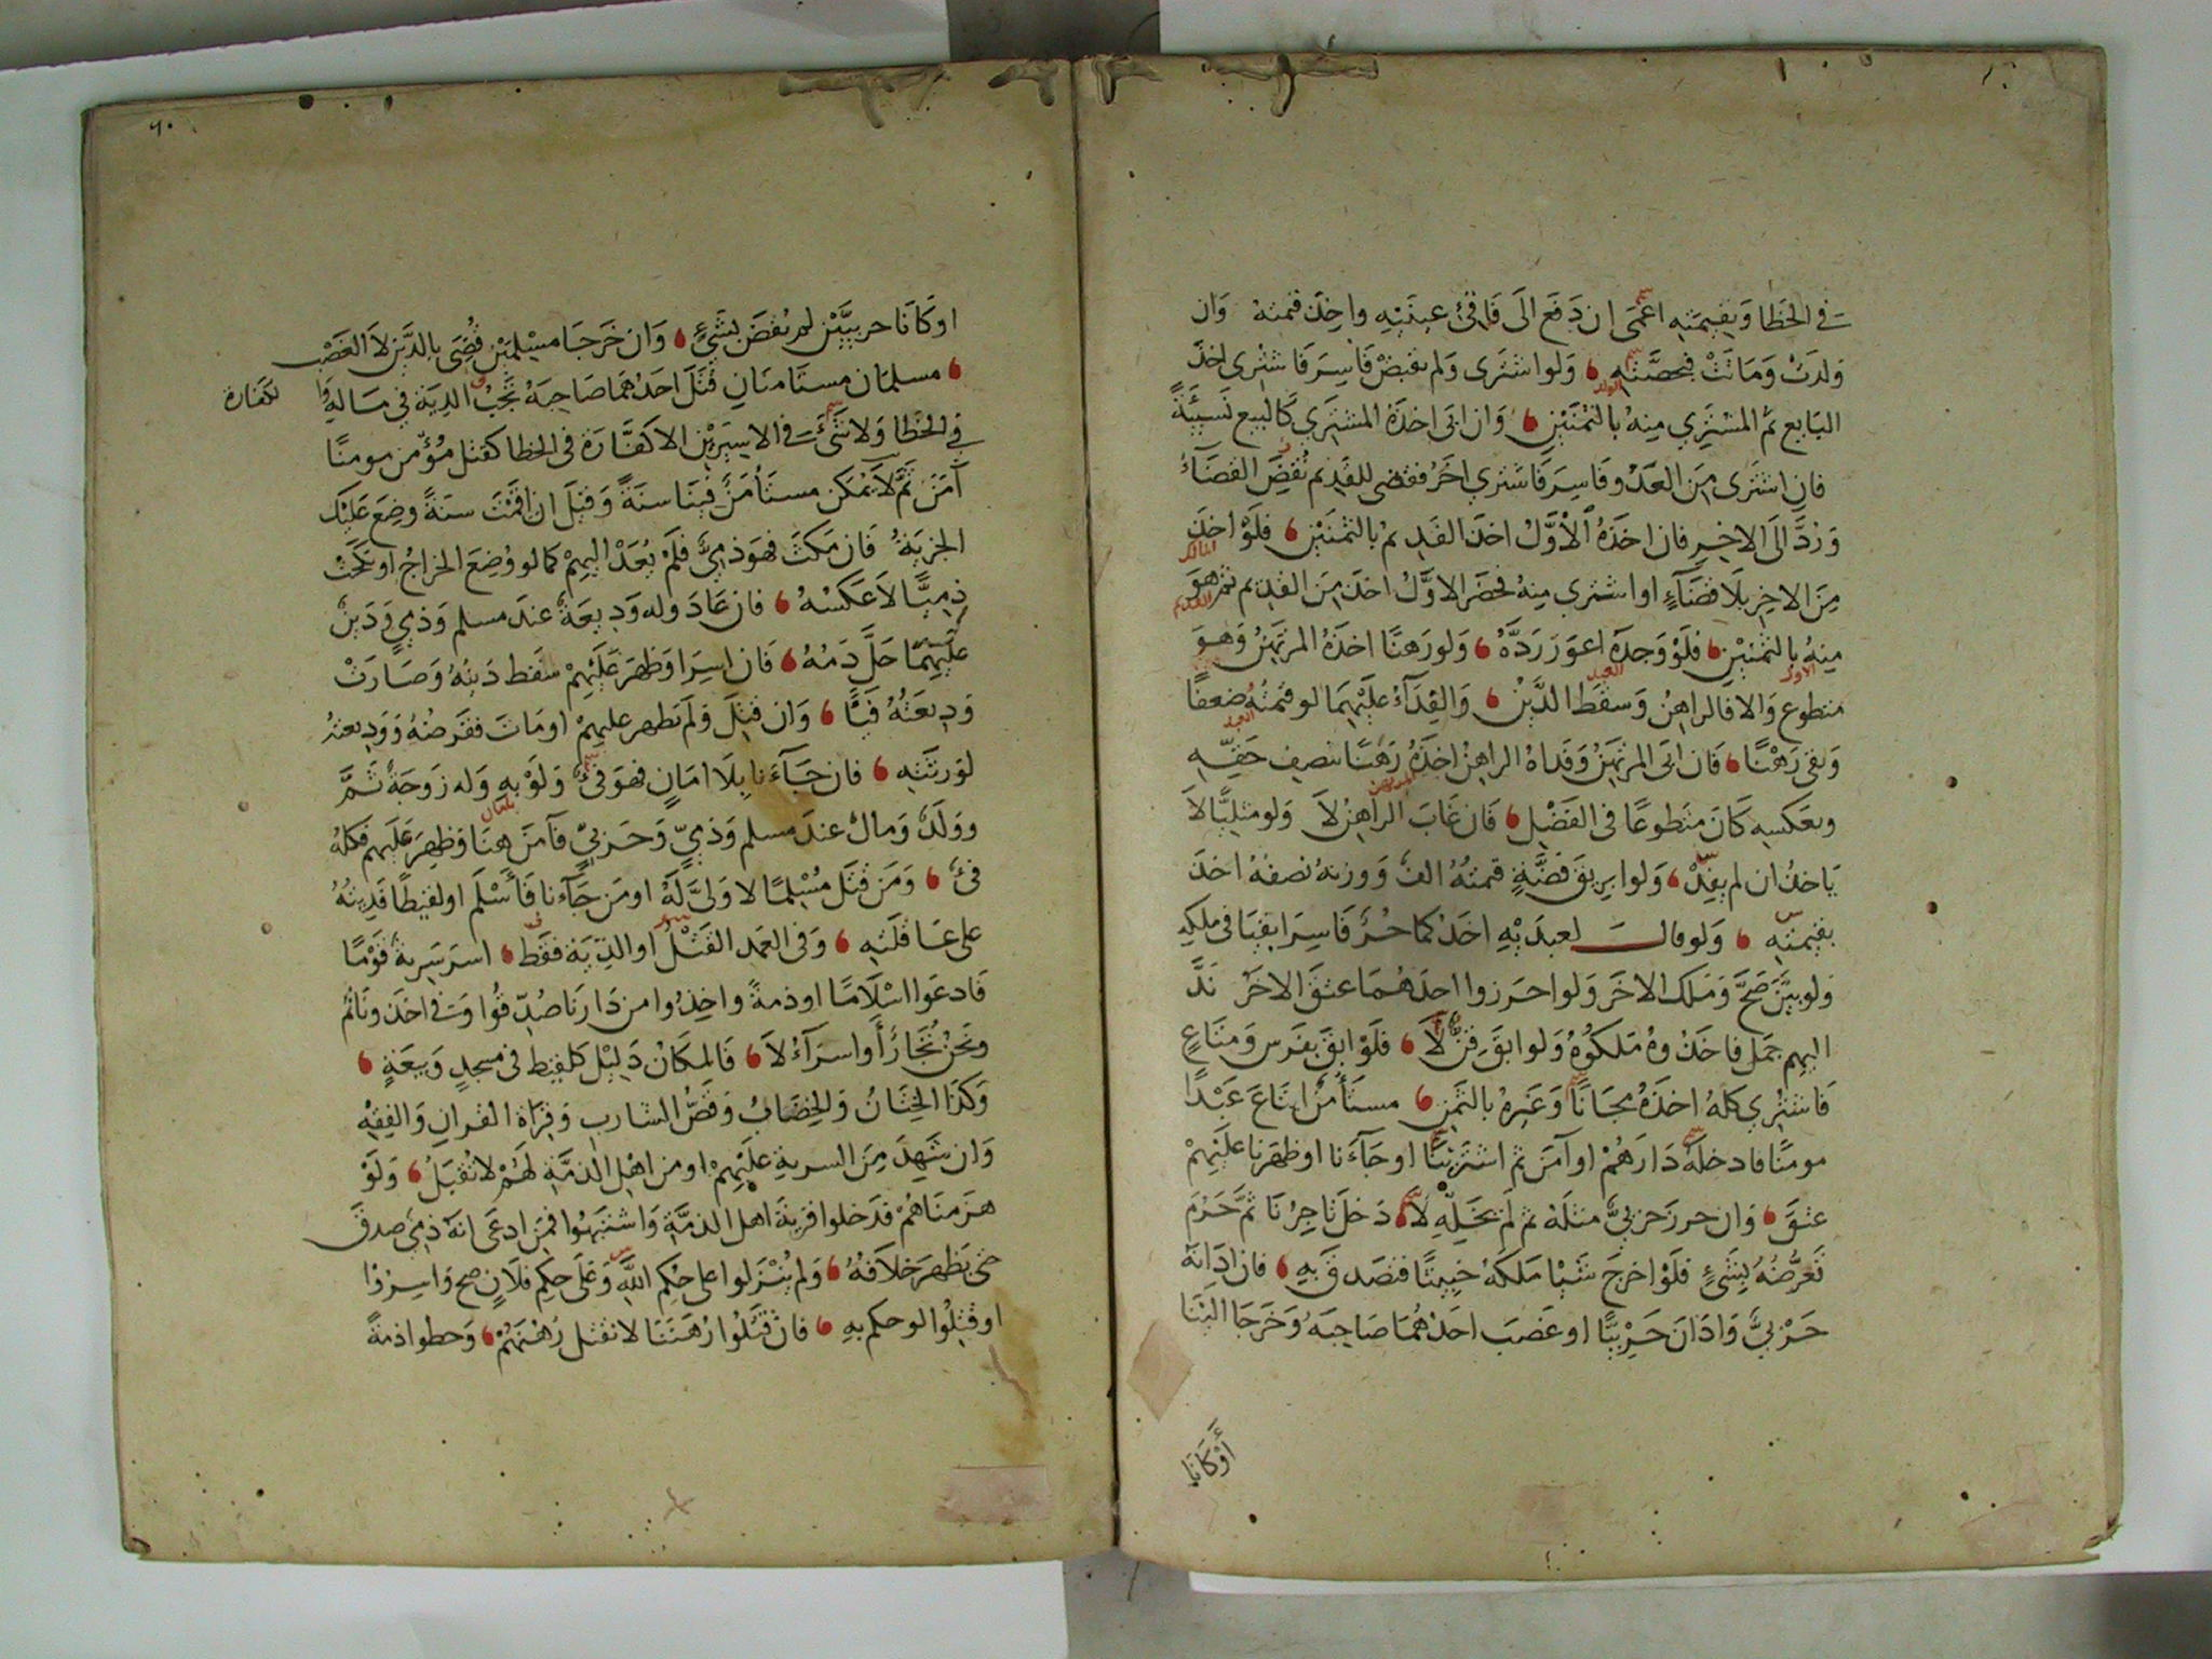 في الخطا وبقيمته اعمى ان دفع الى فاقئ عينيه واخذ قيمته وان
ولدت وماتت فبحصته ولو اشترى ولم يقبض فاسر فاشترى اخذ
البايع ثم المشتري منه بالثمنين وان ابى اخذه المشتري كالبيع نسيئة
فان اشترى من العدو فاسر فاشتري اخر فقضى للقديم نقض القضاء
ورد الى الاخير فان اخذه الاول اخذ القديم بالثمنين فلو اخذ
من الاخر بلا قضاء او اشترى منه فحضر الاول اخذ من القديم ثم هو
منه بالثمنين فلو وجده اعور رده ولو رهنا اخذه المرتهن وهو
متطوع والا فالراهن وسقط الدين والفداء عليهما لو قيمته ضعفا
وبقى رهنا فان ابى المرتهن وفداه الراهن اخذه رهنا بنصف حقه
وبعكسه كان متطوعا في الفضل فان غاب الراهن لا ولو مثليا لا
ياخذ ان لم يفد ولو ابريق فضة قيمته الف ووزنه نصفه اخذ
بقيمته ولو قال لعبديه احدكما حر فاسرا بقيا في ملكه
ولو بين صح وملك الاخر ولو احرزوا احدهما عتق الاخر ند
اليهم جمل فاخذوه ملكوه ولو ابق قن لا فلو ابق بفرس ومتاع
فاشتري كله اخذه مجانا وغيره بالثمن مستأمن ابتاع عبدا
مومنا فادخله دارهم او آمن ثم اشتريناه او جاءنا او ظهرنا عليهم
عتق وان حرز حربي مثله ثم لم يخله لا دخل تاجرنا ثم حرم
تعرضه بشئ فلو اخرج شيا ملكه خبيثا فتصدق به فان ادانه
حربي وادان حربيا او غصب احدهما صاحبه وخرجا الينا
أوكانا
٦٠
اوكانا حربيين لم نقض بشئ وان خرجا مسلمين قضى بالدين لا الغصب
مسلمان مستامنان قتل احدهما صاحبه تجب الدية في ماله وا لكفارة
في الخطا ولا شئ في الاسيرين الا كفارة في الخطا كقتل مؤمن مومنا
آمن ثم لا يمكن مستأمن فينا سنة وقيل ان اقمت سنة وضع عليك
الجزية فان مكث فهو ذمي فلم يعد اليهم كما لو وضع الخراج او نكحت
ذميا لا عكسه فان عاد وله وديعة عند مسلم وذمي ودين
عليهما حل دمه فان اسر او ظهر عليهم سقط دينه وصارت
وديعته فيا وان قتل ولم يظهر عليهم او مات فقرضه ووديعته
لورثته فان جاءنا بلا امان فهو فئ ولو به وله زوجة ثم
وولد ومال عند مسلم وذمي وحربي فآمن هنا وظهر عليهم فكله
فئ ومن قتل مسلما لا ولي له او من جاءنا فأسلم او لقيطا فديته
على عاقلته وفي العمد القتل او الدية فقط اسر سرية قوما
فادعوا اسلاما او ذمة واخذوا من دارنا صدقوا وفي اخذونا ثم
ونحن تجار او اسراء لا فالمكان دليل كلقيط في مسجد وبيعة
وكذا الختان والخضاب وقص الشارب وقراة القران والفقه
وان شهد من السرية عليهم او من اهل الذمة لهم لا تقبل ولو
هزمناهم فدخلوا قرية اهل الذمة واشتبهوا فمن ادعى انه ذمي صدق
حتى يظهر خلافه ولم ينزلوا على حكم الله وعلى حكم فلان صح واسرزا
او قتلوا لو حكم به فان قتلوا رهننا لا نقتل رهنهم وحطوا ذمة